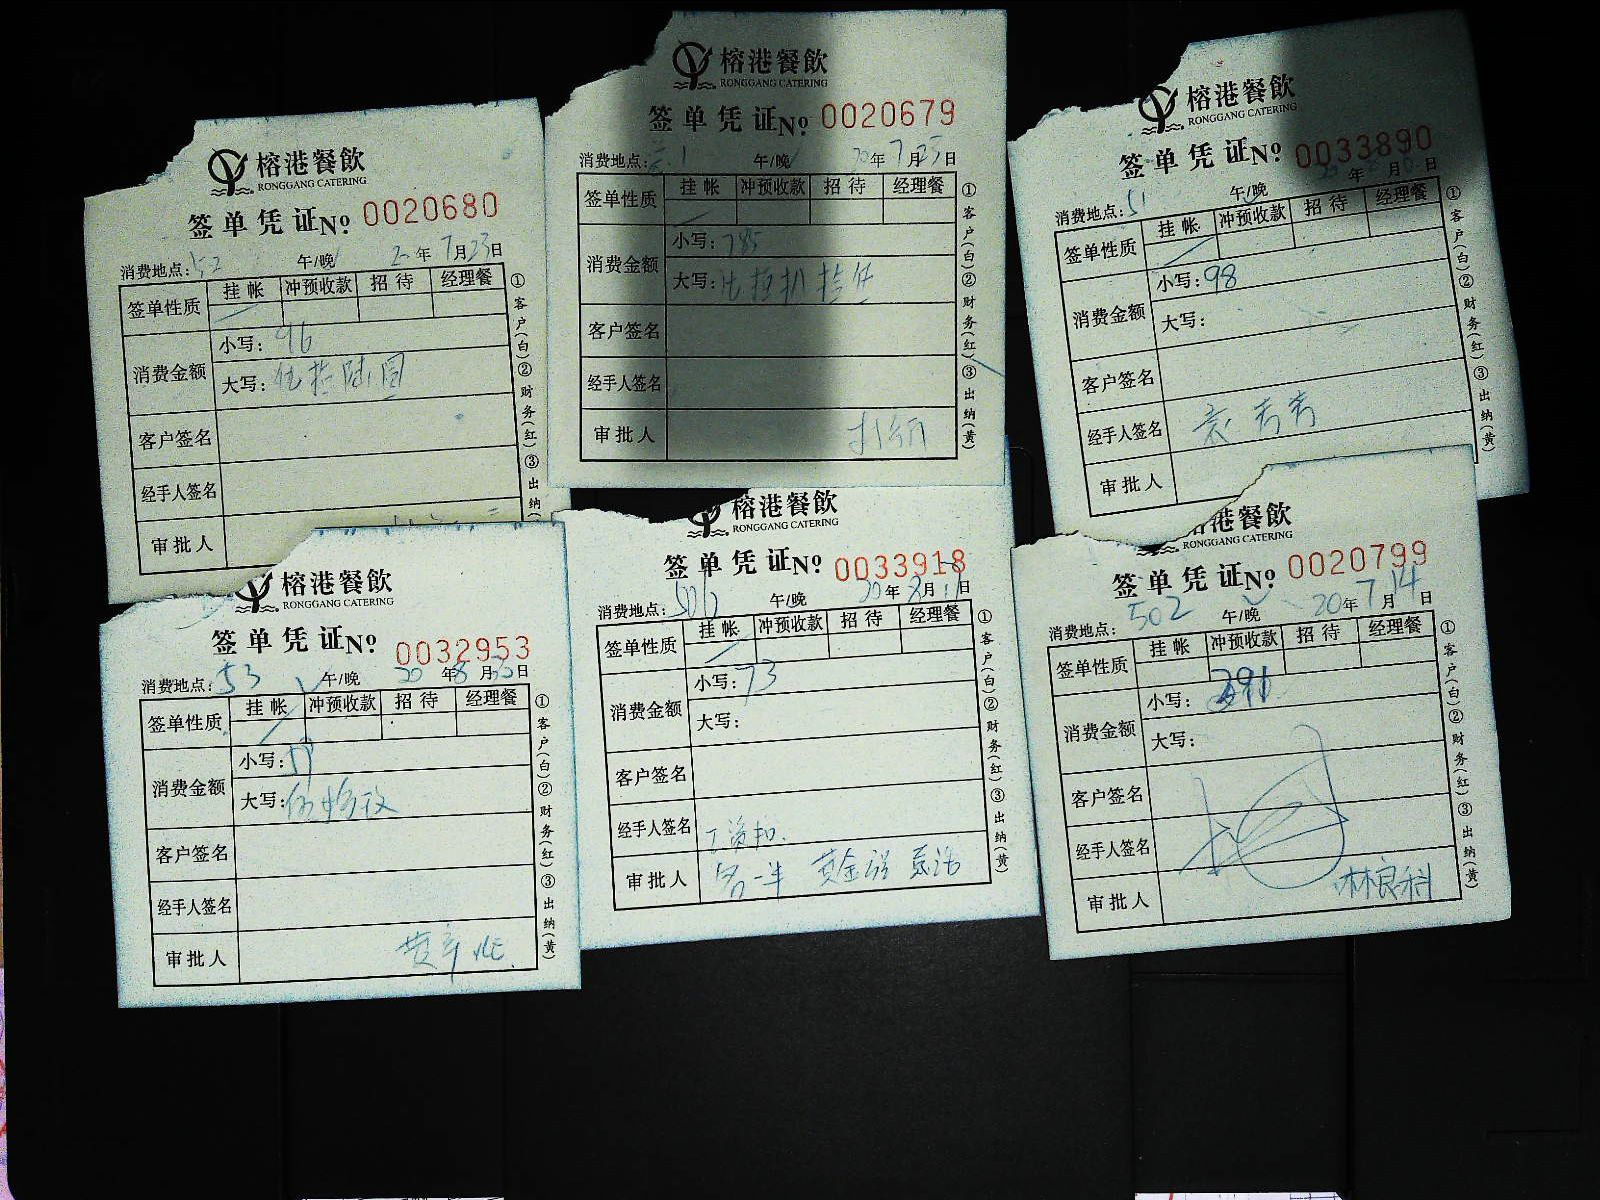 榕港餐飲
RONGGANG CATERING
签单凭证No 0020680
消费地点: 52 午/晚 年 7月23日
签单性质 挂帐 冲预收款 招待 经理餐
消费金额 小写: 96
大写:
客户签名
经手人签名
审批人
①客户(白)②财务(红)③出纳
榕港餐飲
RONGGANG CATERING
签单凭证No 0020679
消费地点: 午/晚 20年7月23日
签单性质 挂帐 冲预收款 招待 经理餐
消费金额 小写: 785
大写:
客户签名
经手人签名
审批人
①客户(白)②财务(红)③出纳(黄)
榕港餐飲
RONGGANG CATERING
签单凭证No 0033890
消费地点: 51 午/晚 年 月 日
签单性质 挂帐 冲预收款 招待 经理餐
消费金额 小写: 98
大写:
客户签名
经手人签名 袁秀秀
审批人
①客户(白)②财务(红)③出纳(黄)
榕港餐飲
RONGGANG CATERING
签单凭证No 0032953
消费地点: 53 午/晚 20年8月 日
签单性质 挂帐 冲预收款 招待 经理餐
消费金额 小写:
大写:
客户签名
经手人签名
审批人
①客户(白)②财务(红)③出纳(黄)
榕港餐飲
RONGGANG CATERING
签单凭证No 0033918
消费地点: 午/晚 20年8月11日
签单性质 挂帐 冲预收款 招待 经理餐
消费金额 小写: 73
大写:
客户签名
经手人签名 工资扣.
审批人 各一半 黄金
①客户(白)②财务(红)③出纳(黄)
榕港餐飲
RONGGANG CATERING
签单凭证No 0020799
消费地点: 502 午/晚 20年7月14日
签单性质 挂帐 冲预收款 招待 经理餐
消费金额 小写: 291
大写:
客户签名
经手人签名
审批人 林良科
①客户(白)②财务(红)③出纳(黄)